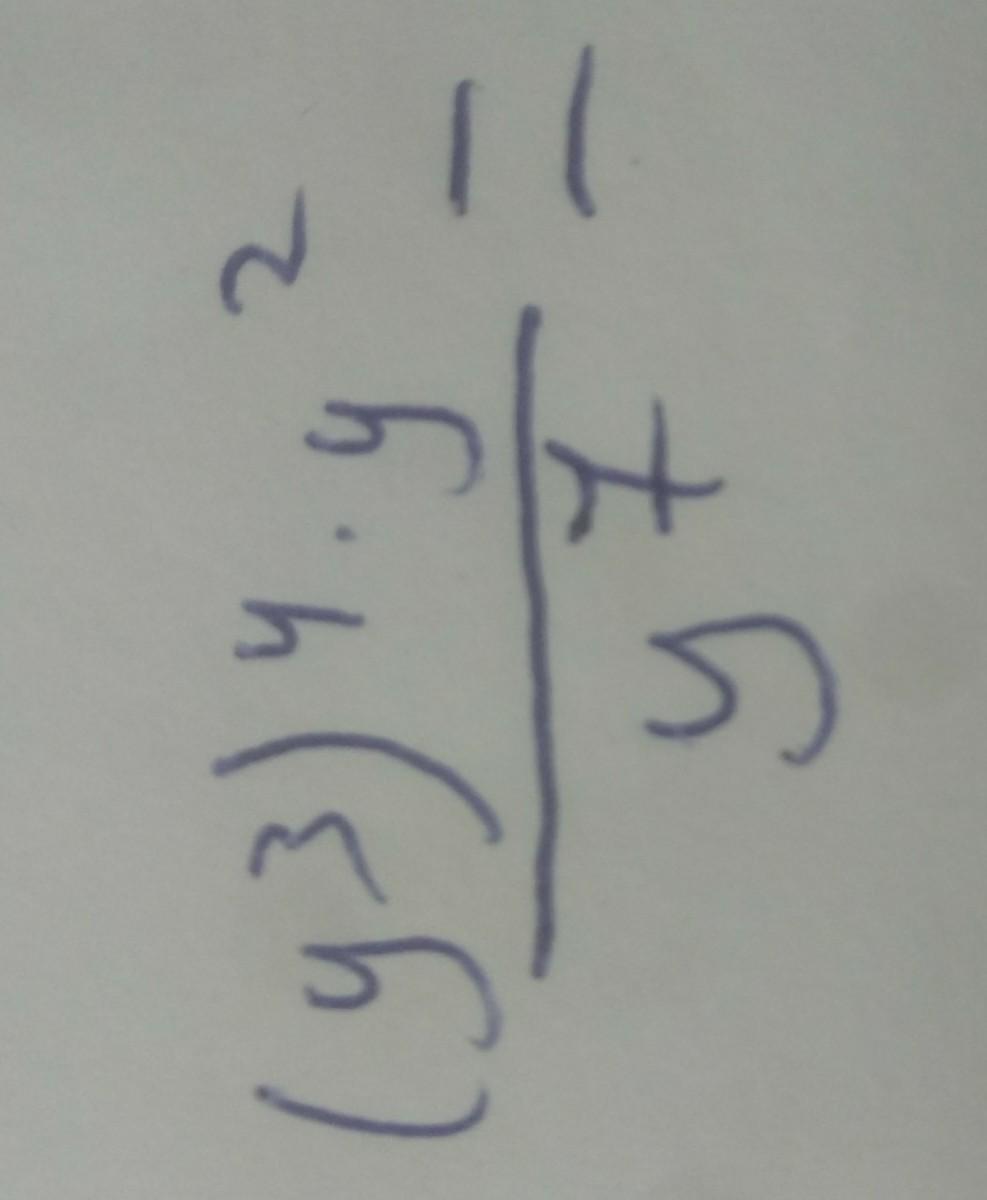 (y³)⁴ · y² / y⁷ =